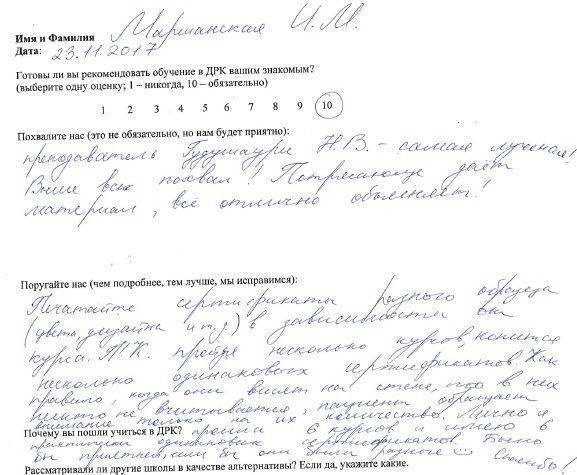 Имя и Фамилия Марианская И.М.
Дата: 23.11.2017
Готовы ли вы рекомендовать обучение в ДРК вашим знакомым?
(выберите одну оценку; 1 – никогда, 10 – обязательно)
1 2 3 4 5 6 7 8 9 10
Похвалите нас (это не обязательно, но нам будет приятно):
преподаватель Гудушаури Н.В. - самая лучшая!
Выше всех похвал! Потрясающе даёт
материал, всё отлично объясняет!
Поругайте нас (чем подробнее, тем лучше, мы исправимся):
Печатайте сертификаты разного образца
(цвета, дизайна и т.д) в зависимости от
курса. Т.К. пройдя несколько курсов, копится
несколько одинаковых сертификатов. Как
правило, когда они висят на стене, то в них
никто не вчитывается, пациенты обращают
внимание только на их количество. Лично я
Почему вы пошли учиться в ДРК? прошла 6 курсов и имею 6
практически одинаковых сертификатов. Было
бы приятнее, если бы они были разные ☺ Спасибо!
Рассматривали ли другие школы в качестве альтернативы? Если да, укажите какие.